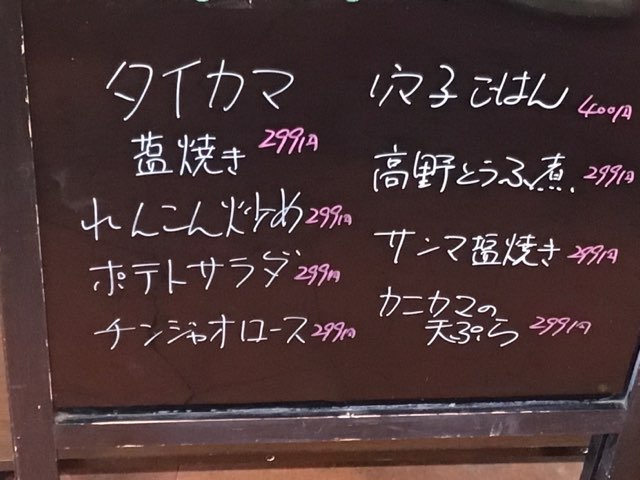 タイカマ
塩焼き 299円
れんこん炒め 299円
ポテトサラダ 299円
チンジャオロース 299円
穴子ごはん 400円
高野とうふ煮 299円
サンマ塩焼き 299円
カニカマの
天ぷら 299円